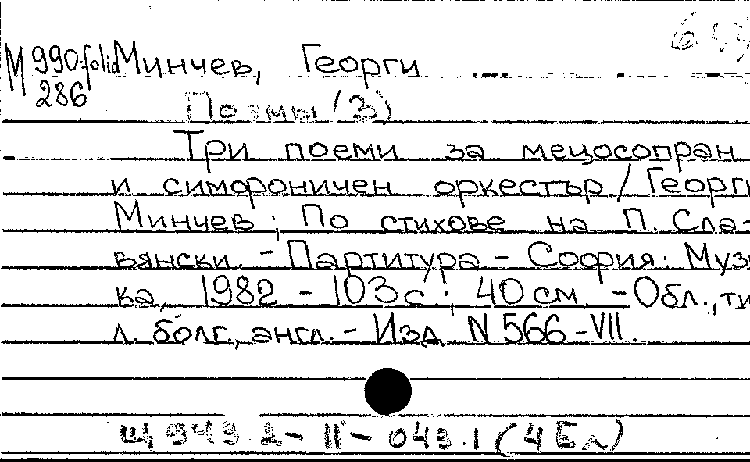 М 990-folio Минчев, Георги
286
Поэмы (3)
Три поеми за мецосопран
и симфоничен оркестър / Георги
Минчев; По стихове на П. Сла-
вянски. - Партитура - София: Музи
ка, 1982 - 103 с.; 40 см. - Обл., ти
л. болг., англ. - Изд. N 566-VII.
Щ 943.2-11-043.1 (4 Бл)